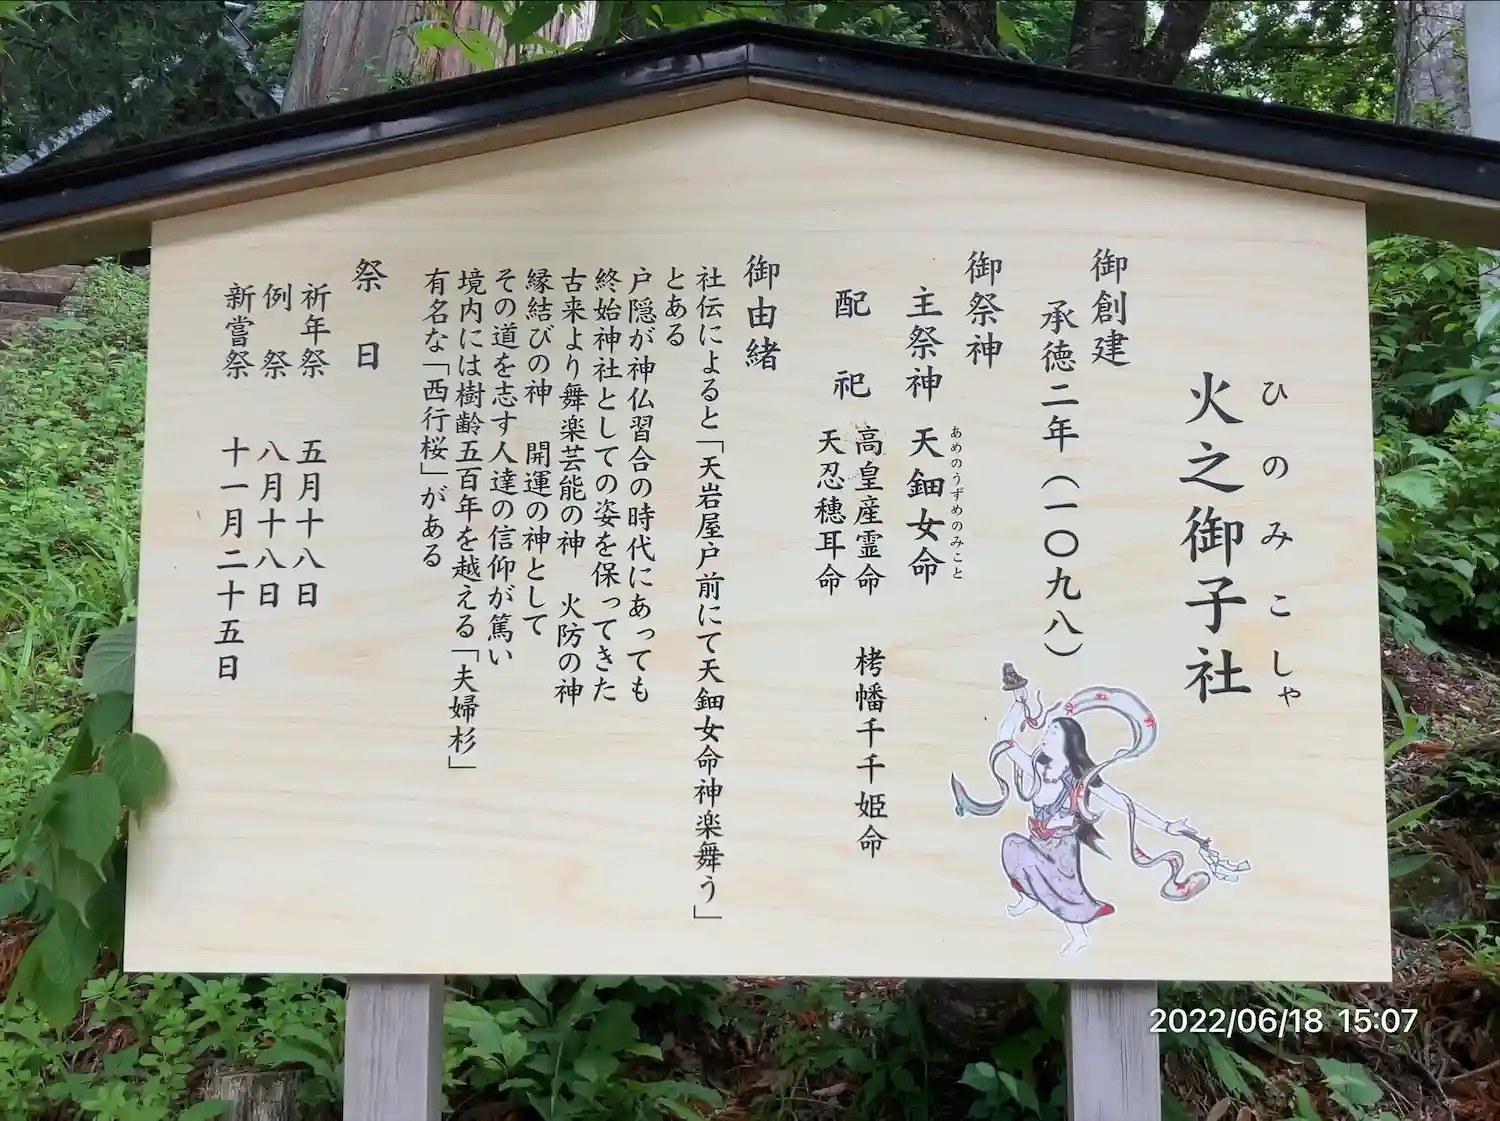 ひのみこしゃ
火之御子社
御創建
承徳二年（一〇九八）
御祭神
あめのうずめのみこと
主祭神　天鈿女命
配　祀　高皇産霊命　栲幡千千姫命
天忍穂耳命
御由緒
社伝によると「天岩屋戸前にて天鈿女命神楽舞う」
とある
戸隠が神仏習合の時代にあっても
終始神社としての姿を保ってきた
古来より舞楽芸能の神　火防の神
縁結びの神　開運の神として
その道を志す人達の信仰が篤い
境内には樹齢五百年を越える「夫婦杉」
有名な「西行桜」がある
祭　日
祈年祭　五月十八日
例　祭　八月十八日
新嘗祭　十一月二十五日
2022/06/18 15:07